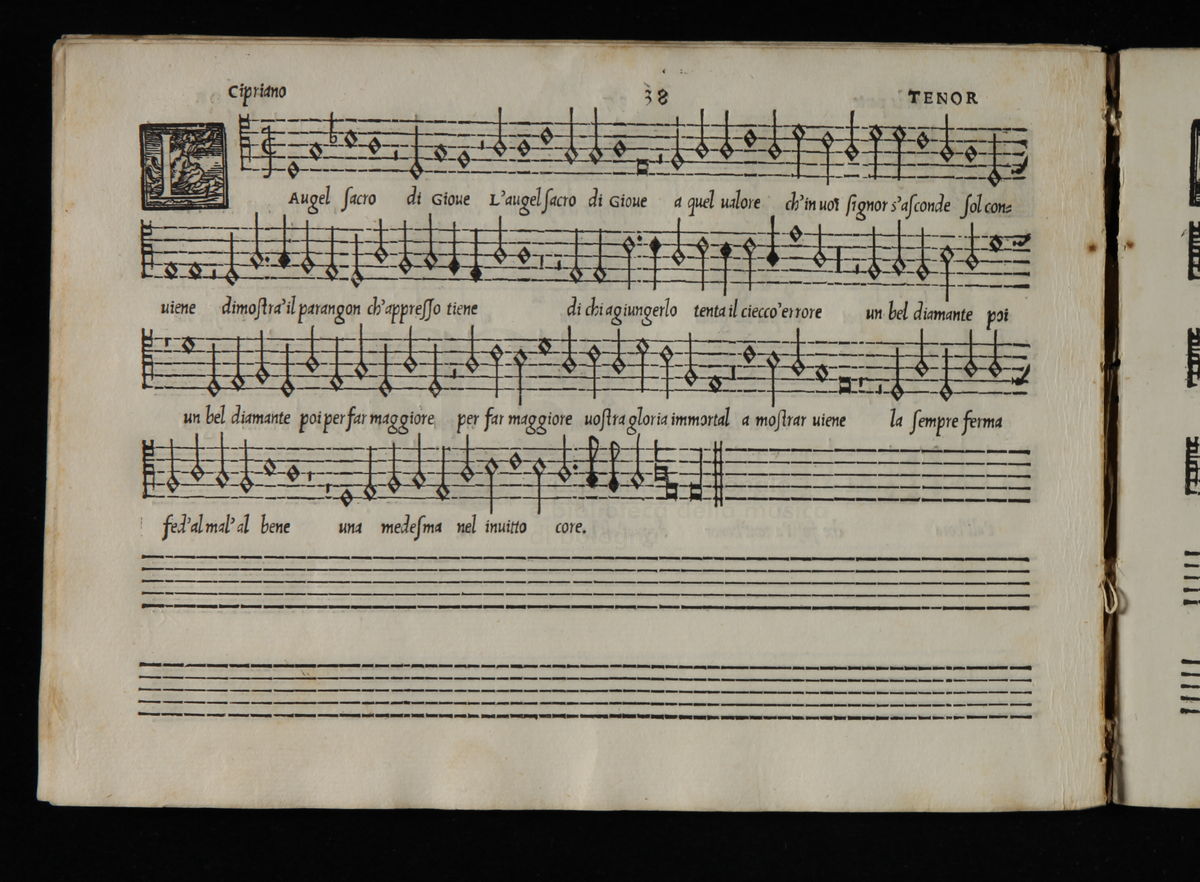 Cipriano 38 TENOR
L Augel ſacro di Gioue L'augel ſacro di Gioue a quel ualore ch'in uoi ſignor s'aſconde ſol con=
uiene dimoſtra'il parangon ch'appreſſo tiene di chi agiungerlo tenta il ciecco'errore un bel diamante poi
un bel diamante poi per far maggiore per far maggiore uoſtra gloria immortal a moſtrar uiene la ſempre ferma
fed'al mal'al bene una medeſma nel inuitto core.
biblioteca della musica